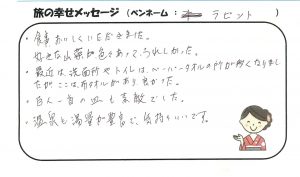 旅の幸せメッセージ (ペンネーム: ラビット )
・食事おいしくいただきました。
好きな山菜が色々あって、うれしかった。
・最近は、洗面所やトイレは、ペーパータオルの所が多くなりまし
たがここは、布タオルがあり良かった。
・百人一首の皿も素敵でした。
・温泉も湯量が豊富で、気持ちいいです。